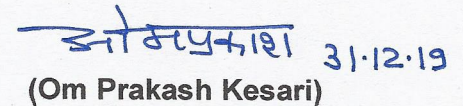 ओमप्रकाश 31.12.19
(Om Prakash Kesari)